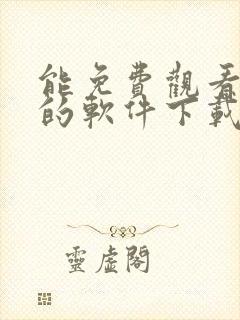 能免費觀看
的軟件下載
靈虛閣